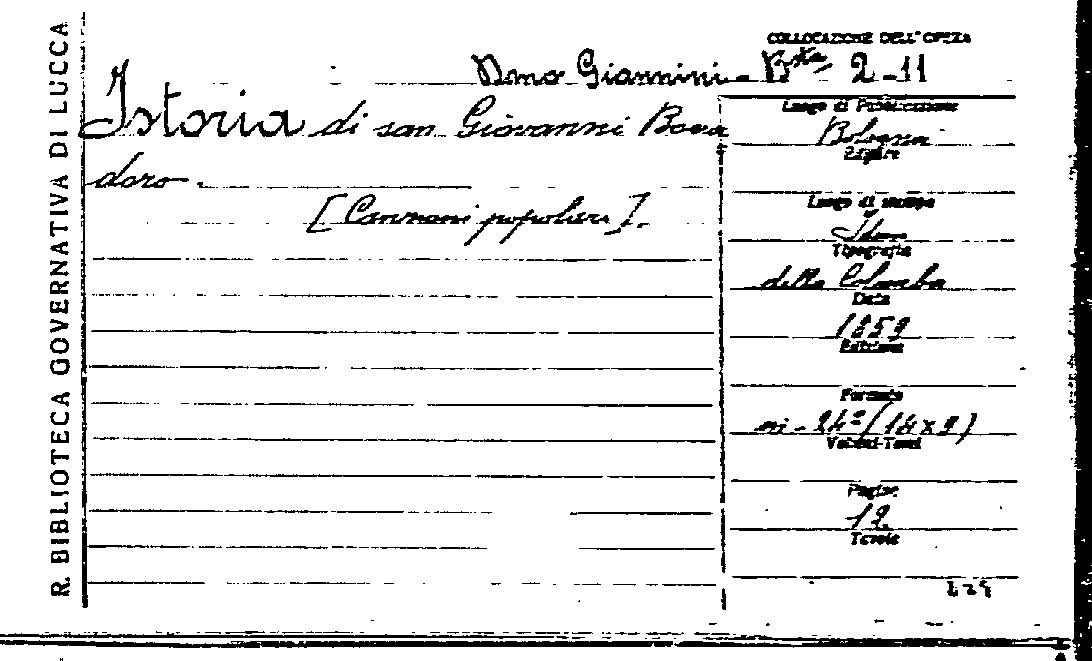 R. BIBLIOTECA GOVERNATIVA DI LUCCA
COLLOCAZIONE DELL'OPERA
Dono Giannini - Bta 2-11
Istoria di san Giovanni Bocca
doro.
[Canzoni popolari].
Luogo di Pubblicazione
Bologna
Editore
Luogo di stampa
Idem
Tipografia
della Colomba
Data
1859
Edizione
Formato
in-24º (14x9)
Volumi-Tomi
Pagine
12
Tavole